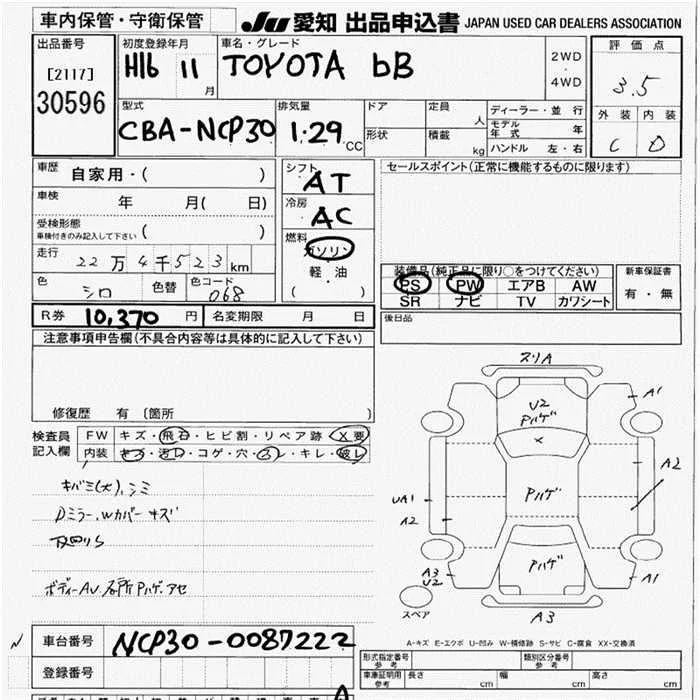 車内保管・守衛保管
JU 愛知 出品申込書 JAPAN USED CAR DEALERS ASSOCIATION
出品番号 初度登録年月 車名・グレード 評価点
[2117] H16 11月 TOYOTA bB 2WD・4WD 3.5
30596
型式 排気量 ドア 定員 人 ディーラー・並行 外装 内装
CBA-NCP30 1.29 CC 形状 積載 kg モデル年式 年 C D
ハンドル 左・右
車歴 自家用・( ) シフト AT セールスポイント(正常に機能するものに限ります)
車検 年 月( 日) 冷房 AC
受検形態 車検付きのみ記入して下さい ( )
燃料 ガソリン・軽油 ( )
走行 22万4千523km
装備品(純正品に限り○をつけてください) 新車保証書
PS PW エアB AW 有・無
SR ナビ TV カワシート
色 シロ 色替 色コード 068
R券 10,370円 名変期限 月 日 後日品
注意事項申告欄(不具合内容等は具体的に記入して下さい)
修復歴 有 〔箇所 〕
検査員記入欄 FW キズ・飛石・ヒビ割・リペア跡・X要
内装 キズ・汚レ・コゲ・穴・スレ・キレ・破レ
キバミ(大)、シミ
Dミラー、Wカバー キズ
ボディーAU
スリA
U2
Pハゲ
A1
X
A2
Pハゲ
UA1
A2
Pハゲ
A3
U2
A1
スペア
A3
A-キズ E-エクボ U-凹み W-補修跡 S-サビ C-腐食 XX-交換済
車台番号 NCP30-0087222
登録番号
形式指定番号 参考 類別区分番号 参考
車庫証明用 参考 長さ cm 幅 cm 高さ cm